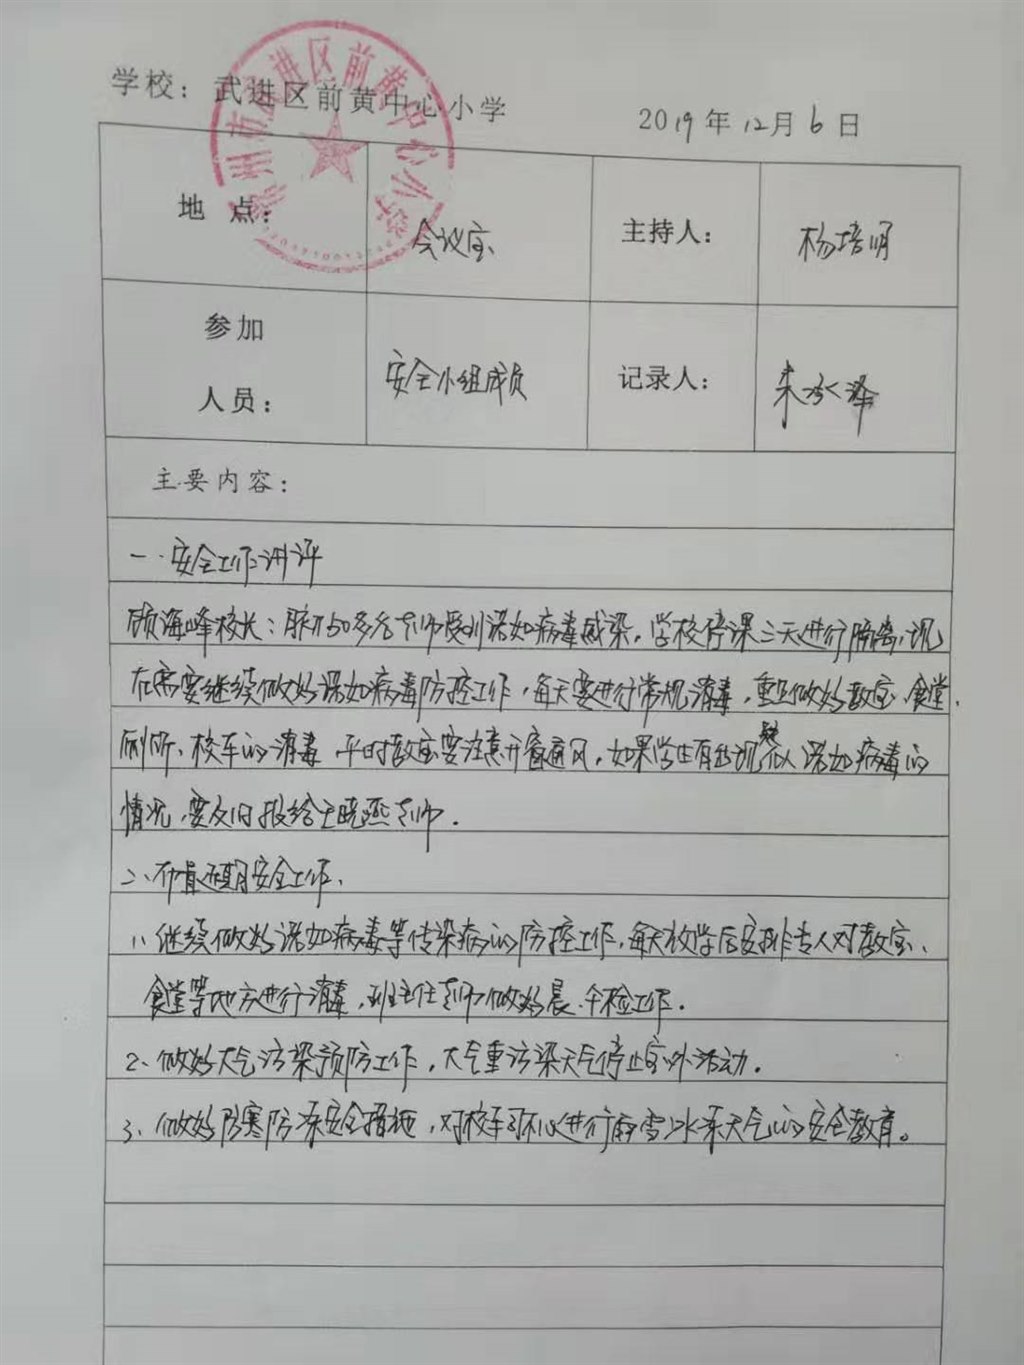 常州市武进区前黄中心小学
学校：武进区前黄中心小学 2019年12月6日
地 点： 会议室 主持人： 杨培明
参加
人员： 安全小组成员 记录人： 朱永泽
主要内容：
一、安全工作讲评
顾海峰校长：昨天50多名 受到诺如病毒感染，学校停课三天进行隔离，现
在需要继续做好诺如病毒防控工作，每天要进行常规消毒，重点做好教室、食堂、
厕所、校车的消毒，平时教室要注意开窗通风，如果学生有出现疑似诺如病毒的
情况，要及时报给王晓燕老师。
二、布置近期安全工作、
1、继续做好诺如病毒等传染病的防控工作，每天放学后安排专人对教室、
食堂等地方进行消毒，班主任老师做好晨、午检工作。
2、做好大气污染预防工作，大气重污染天气停止室外活动。
3、做好防寒防冻安全措施，对校车司机进行雨雪冰冻天气的安全教育。